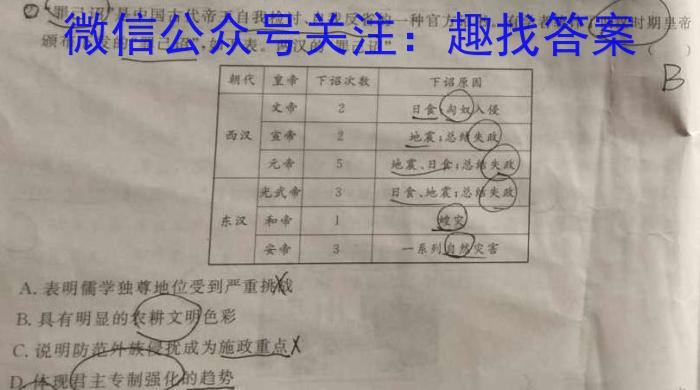 "罪己诏"是中国古代帝王自我检讨、
时期皇帝
微信公众号关注：趣找答案
颁布
B
朝代 皇帝 下诏次数 下诏原因
西汉 文帝 2 日食;匈奴入侵
宣帝 2 地震;总结失政
元帝 5 地震、日食;总结失政
东汉 光武帝 3 日食、地震;总结失政
和帝 1 蝗灾
安帝 3 一系列自然灾害
A. 表明儒学独尊地位受到严重挑战
B. 具有明显的农耕文明色彩
C. 说明防范外族侵扰成为施政重点
D. 体现君主专制强化的趋势